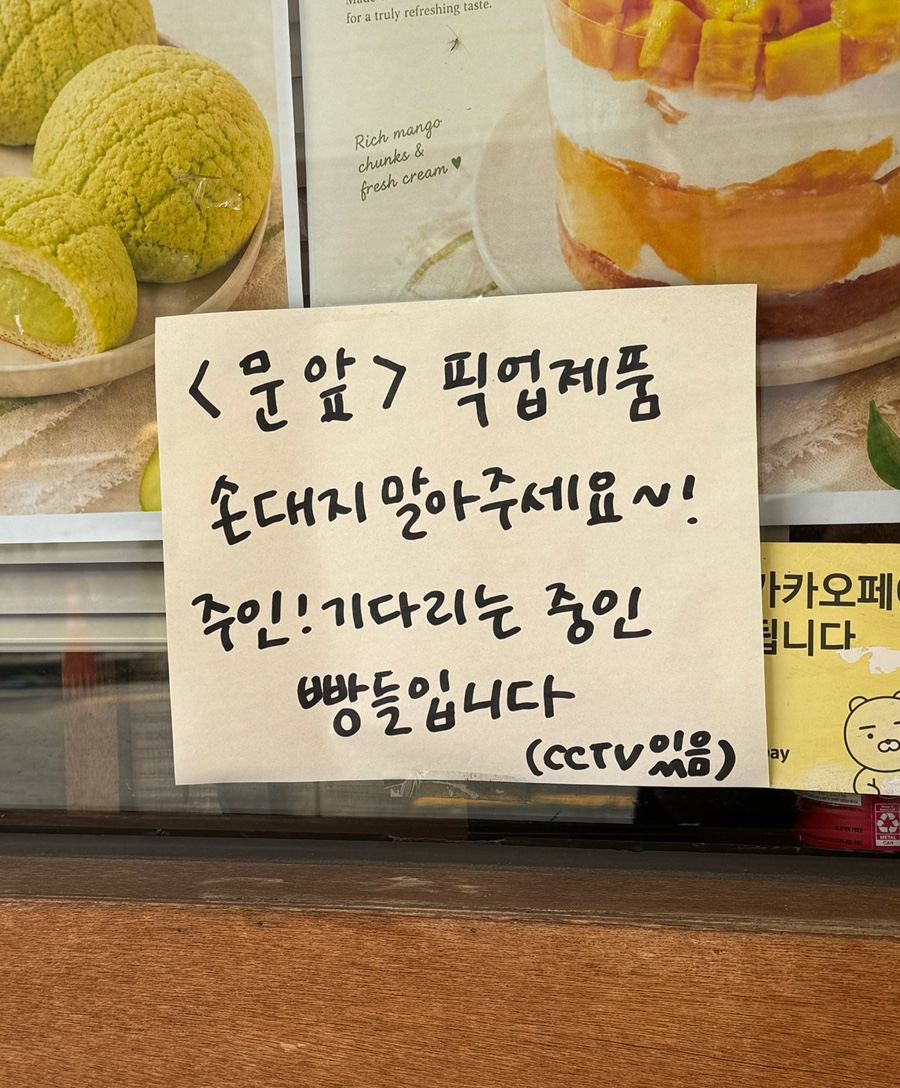 for a truly refreshing taste.
Rich mango
chunks &
fresh cream ♥
<문 앞> 픽업제품
손대지 말아주세요~!
주인! 기다리는 중인
빵들입니다
(CCTV 있음)
카카오페
됩니다
METAL
CAN